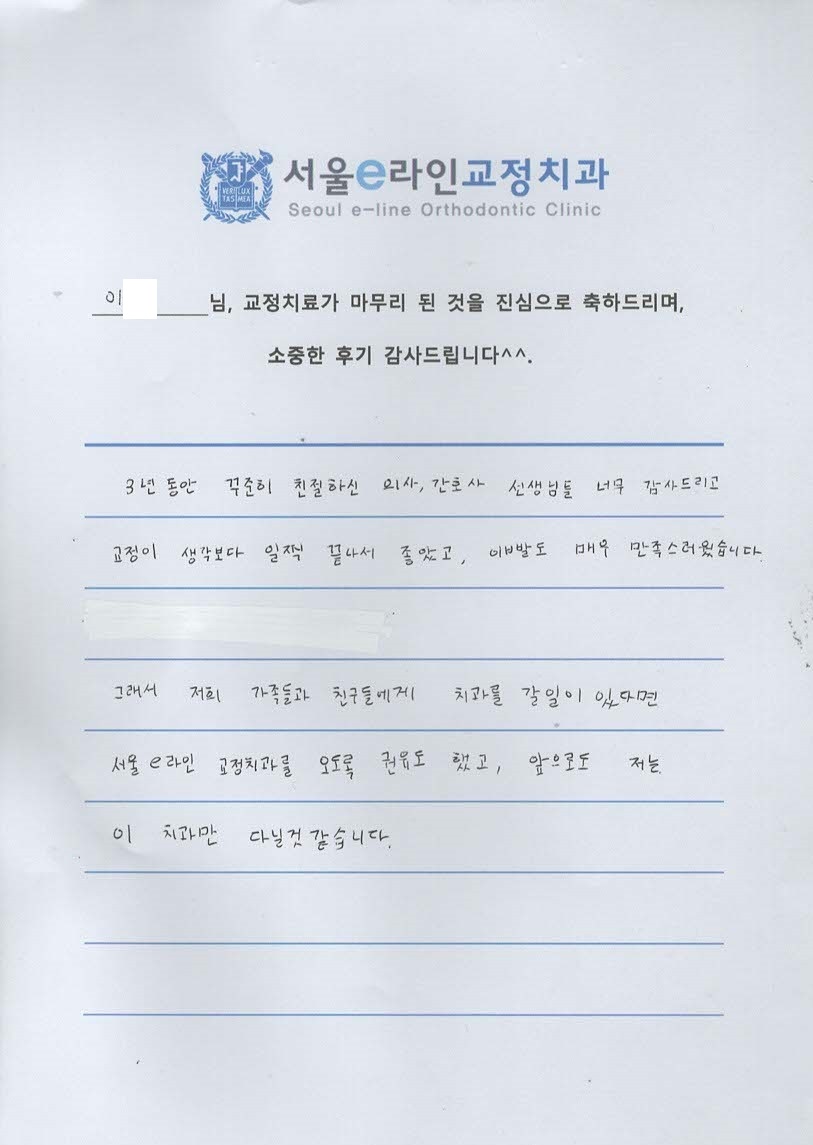 서울e라인교정치과
VERI LUX
TAS MEA
Seoul e-line Orthodontic Clinic
이 님, 교정치료가 마무리 된 것을 진심으로 축하드리며,
소중한 후기 감사드립니다^^.
3년 동안 꾸준히 친절하신 의사, 간호사 선생님들 너무 감사드리고
교정이 생각보다 일찍 끝나서 좋았고, 이빨도 매우 만족스러웠습니다.
그래서 저희 가족들과 친구들에게 치과를 갈일이 있다면
서울 e라인 교정치과를 오도록 권유도 했고, 앞으로도 저는
이 치과만 다닐것 같습니다.